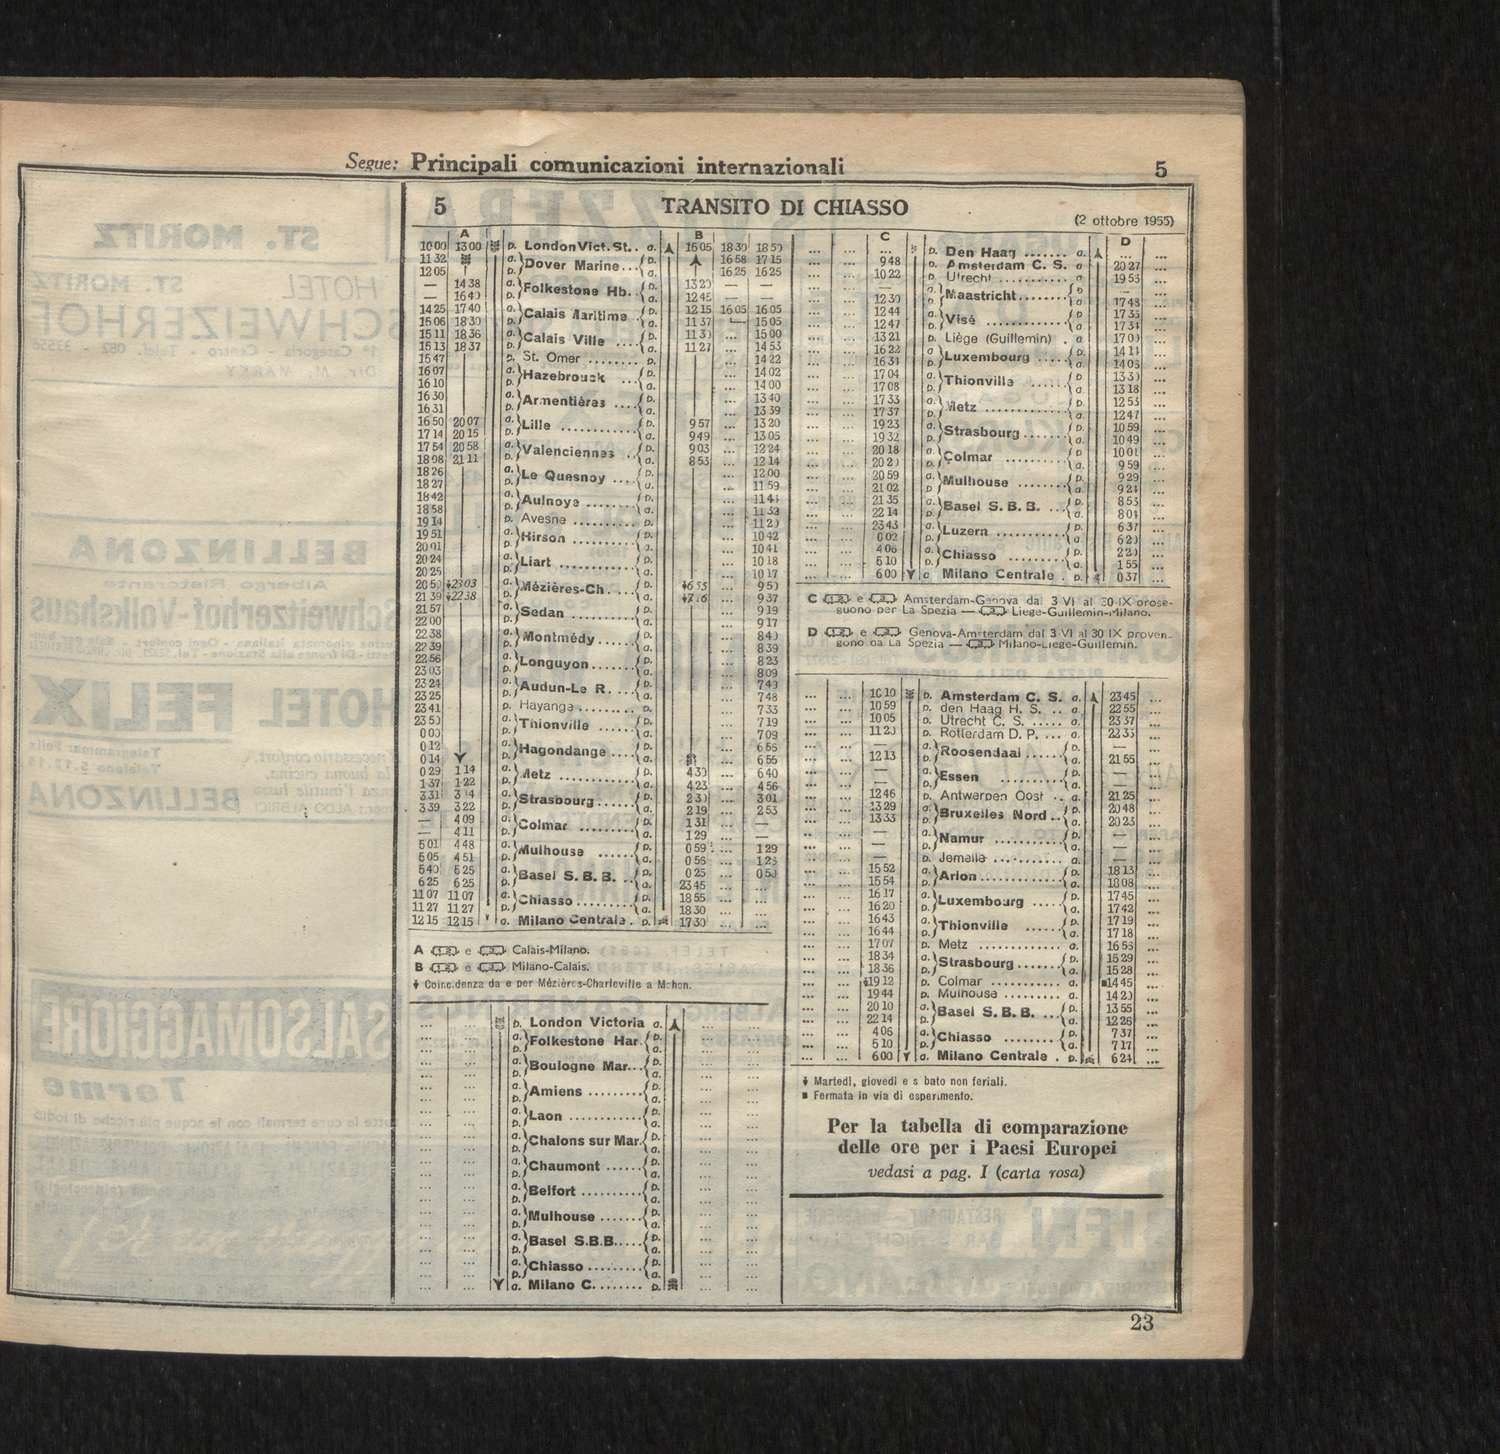 Segue: Principali comunicazioni internazionali 5
5 TRANSITO DI CHIASSO (2 ottobre 1955)
A B
10 00 13 00 p. London Vict. St. . a. 16 05 18 30 18 50
11 32 a. Dover Marine... p. 16 58 17 15
12 05 p. a. 16 25 16 25
— 14 38 a. Folkestone Hb. . p. 13 20 — —
— 16 40 p. a. 12 45 — —
14 25 17 40 a. Calais Maritime . p. 12 15 16 05 16 05
15 06 18 30 p. a. 11 37 15 05
15 11 18 36 a. Calais Ville .... p. 11 30 ... 15 00
15 13 18 37 p. a. 11 27 ... 14 53
15 47 p. St. Omer ........ p. ... 14 22
16 07 a. Hazebrouck ... p. ... 14 02
16 10 p. a. ... 14 00
16 30 a. Armentières .... p. ... 13 40
16 31 p. a. ... 13 39
16 50 20 07 a. Lille ........... p. 9 57 ... 13 20
17 14 20 15 p. a. 9 49 ... 13 05
17 54 20 58 a. Valenciennes .. p. 9 03 ... 12 24
18 08 21 11 p. a. 8 53 ... 12 14
18 26 a. Le Quesnoy .... p. ... 12 00
18 27 p. a. ... 11 59
18 42 a. Aulnoye ........ p. ... 11 44
18 58 p. a. ... 11 33
19 14 p. Avesne .......... p. ... 11 20
19 51 a. Hirson .......... p. ... 10 42
20 01 p. a. ... 10 41
20 24 a. Liart ............ p. ... 10 18
20 25 p. a. ... 10 17
20 50 a. Mézières-Ch. ... p. ... 9 50
21 39 22 38 p. a. ... 9 37
21 57 a. Sedan .......... p. ... 9 19
22 00 p. a. ... 9 17
22 38 a. Montmédy ..... p. ... 8 40
22 39 p. a. ... 8 39
22 56 a. Longuyon ...... p. ... 8 23
23 03 p. a. ... 8 09
23 24 a. Audun-Le R. ... p. ... 7 49
23 25 p. a. ... 7 48
23 41 p. Hayange ........ p. ... 7 33
23 50 a. Thionville ...... p. ... 7 19
0 00 p. a. ... 7 09
0 12 a. Hagondange .... p. ... 6 56
0 14 p. a. ... 6 55
0 29 1 14 a. Metz ........... p. 4 30 ... 6 40
1 37 1 22 p. a. 4 23 ... 4 56
3 31 3 14 a. Strasbourg ..... p. 2 30 ... 3 01
3 39 3 22 p. a. 2 19 ... 2 53
— 4 09 a. Colmar ......... p. 1 31 ... —
— 4 11 p. a. 1 29 ... —
5 01 4 48 a. Mulhouse ...... p. 0 59 ... 1 29
5 05 4 51 p. a. 0 56 ... 1 25
5 40 5 25 a. Basel S. B. B. .. p. 0 25 ... 0 50
6 25 6 25 p. a. 23 45 ... ...
11 07 11 07 a. Chiasso ......... p. 18 55 ... ...
11 27 11 27 p. a. 18 30 ... ...
12 15 12 15 a. Milano Centrale . p. 17 30 ... ...
A e Calais-Milano.
B e Milano-Calais.
Coincidenza da e per Mézières-Charleville a Mohon.
p. London Victoria a.
a. Folkestone Har. p.
p. a.
a. Boulogne Mar... p.
p. a.
a. Amiens ......... p.
p. a.
a. Laon ............ p.
p. a.
a. Chalons sur Mar. p.
p. a.
a. Chaumont ...... p.
p. a.
a. Belfort .......... p.
p. a.
a. Mulhouse ....... p.
p. a.
a. Basel S.B.B..... p.
p. a.
a. Chiasso ......... p.
p. a.
a. Milano C........ p.
C D
... ... ... p. Den Haag ....... a. ... ...
... ... 9 48 p. Amsterdam C. S. a. 20 27 ...
... ... 10 22 p. Utrecht ........... a. 19 53 ...
... ... — a. Maastricht ....... p. — ...
... ... 12 30 p. a. 17 48 ...
... ... 12 44 a. Visé ............ p. 17 35 ...
... ... 12 47 p. a. 17 31 ...
... ... 13 21 p. Liége (Guillemin) . a. 17 00 ...
... ... 16 22 a. Luxembourg .... p. 14 11 ...
... ... 16 31 p. a. 14 05 ...
... ... 17 04 a. Thionville ...... p. 13 30 ...
... ... 17 08 p. a. 13 18 ...
... ... 17 33 a. Metz ........... p. 12 53 ...
... ... 17 37 p. a. 12 47 ...
... ... 19 23 a. Strasbourg ...... p. 10 59 ...
... ... 19 32 p. a. 10 49 ...
... ... 20 18 a. Colmar .......... p. 10 01 ...
... ... 20 20 p. a. 9 59 ...
... ... 20 59 a. Mulhouse ....... p. 9 29 ...
... ... 21 02 p. a. 9 24 ...
... ... 21 35 a. Basel S. B. B. ... p. 8 53 ...
... ... 22 14 p. a. 8 04 ...
... ... 23 43 a. Luzern .......... p. 6 37 ...
... ... 0 02 p. a. 6 20 ...
... ... 4 06 a. Chiasso ......... p. 2 20 ...
... ... 5 10 p. a. 1 55 ...
... ... 6 00 a. Milano Centrale . p. 0 37 ...
C e Amsterdam-Genova dal 3 VI al 30 IX prose-
guono per La Spezia — Liege-Guillemin-Milano.
D e Genova-Amsterdam dal 3 VI al 30 IX proven-
gono da La Spezia — Milano-Liege-Guillemin.
... ... 10 10 p. Amsterdam C. S. a. 23 45 ...
... ... 10 59 p. den Haag H. S. .. a. 22 55 ...
... ... 10 05 p. Utrecht C. S. ..... a. 23 37 ...
... ... 11 20 p. Rotterdam D. P. ... a. 22 33 ...
... ... — a. Roosendaal ...... p. — ...
... ... 12 13 p. a. 21 55 ...
... ... — a. Essen ........... p. — ...
... ... — p. a. — ...
... ... 12 46 p. Antwerpen Oost .. a. 21 25 ...
... ... 13 29 a. Bruxelles Nord .. p. 20 48 ...
... ... 13 33 p. a. 20 23 ...
... ... — a. Namur .......... p. — ...
... ... — p. a. — ...
... ... — p. Jemelle ........... a. — ...
... ... 15 52 a. Arlon ............ p. 18 13 ...
... ... 15 54 p. a. 18 08 ...
... ... 16 17 a. Luxembourg .... p. 17 45 ...
... ... 16 20 p. a. 17 42 ...
... ... 16 43 a. Thionville ...... p. 17 19 ...
... ... 16 44 p. a. 17 18 ...
... ... 17 07 p. Metz ............ a. 16 53 ...
... ... 18 34 a. Strasbourg ....... p. 15 29 ...
... ... 18 36 p. a. 15 28 ...
... ... 19 12 p. Colmar ........... a. ■14 45 ...
... ... 19 44 p. Mulhouse ......... a. 14 20 ...
... ... 20 10 a. Basel S. B. B. ... p. 13 55 ...
... ... 22 14 p. a. 12 26 ...
... ... 4 06 a. Chiasso ......... p. 7 37 ...
... ... 5 10 p. a. 7 17 ...
... ... 6 00 a. Milano Centrale . p. 6 24 ...
Martedì, giovedì e s bato non feriali.
■ Fermata in via di esperimento.
Per la tabella di comparazione
delle ore per i Paesi Europei
vedasi a pag. I (carta rosa)
23